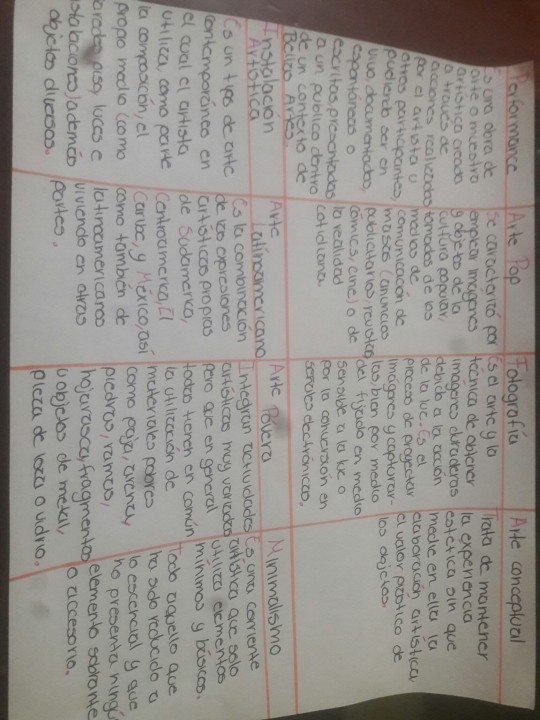 Performance
Es una obra de
arte o muestra
artística creada
a través de
acciones realizadas
por el artista u
otros participantes,
pudiendo ser en
vivo, documentadas,
espontáneas o
escritas, presentadas
a un público dentro
de un contexto de
Bellas Artes.
Arte Pop
Se caracterizó por
emplear imágenes
y objetos de la
cultura popular,
tomados de los
medios de
comunicación de
masas (anuncios
publicitarios, revistas
cómics, cine) o de
la realidad
cotidiana.
Fotografía
Es el arte y la
técnica de obtener
imágenes duraderas
debido a la acción
de la luz. Es el
proceso de proyectar
imágenes y capturar-
las, bien por medio
del fijado en medio
sensible a la luz o
por la conversión en
señales electrónicas.
Arte conceptual
Trata de mantener
la experiencia
estética sin que
medie en ella la
elaboración artística,
el valor práctico de
los objetos.
Instalación
Artística
Es un tipo de arte
contemporáneo en
el cual el artista
utiliza, como parte
la composición, el
propio medio (como
paredes, piso, luces e
instalaciones) además
objetos diversos.
Arte
Latinoamericano
Es la combinación
de las expresiones
artísticas propias
de Sudamerica,
Centroamerica, El
Caribe, y México, así
como también de
latinoamericanos
viviendo en otras
partes.
Arte Póvera
Integran actividades
artísticas muy variadas
pero que en general
todas tienen en común
la utilización de
materiales pobres
como paja, arena,
piedras, ramas,
hojarasca, fragmentos
u objetos de metal,
pieza de loza o vidrio.
Minimalismo
Es una corriente
artística que solo
utiliza elementos
mínimos y básicos.
Todo aquello que
ha sido reducido a
lo esencial y que
no presenta ningún
elemento sobrante
o accesorio.